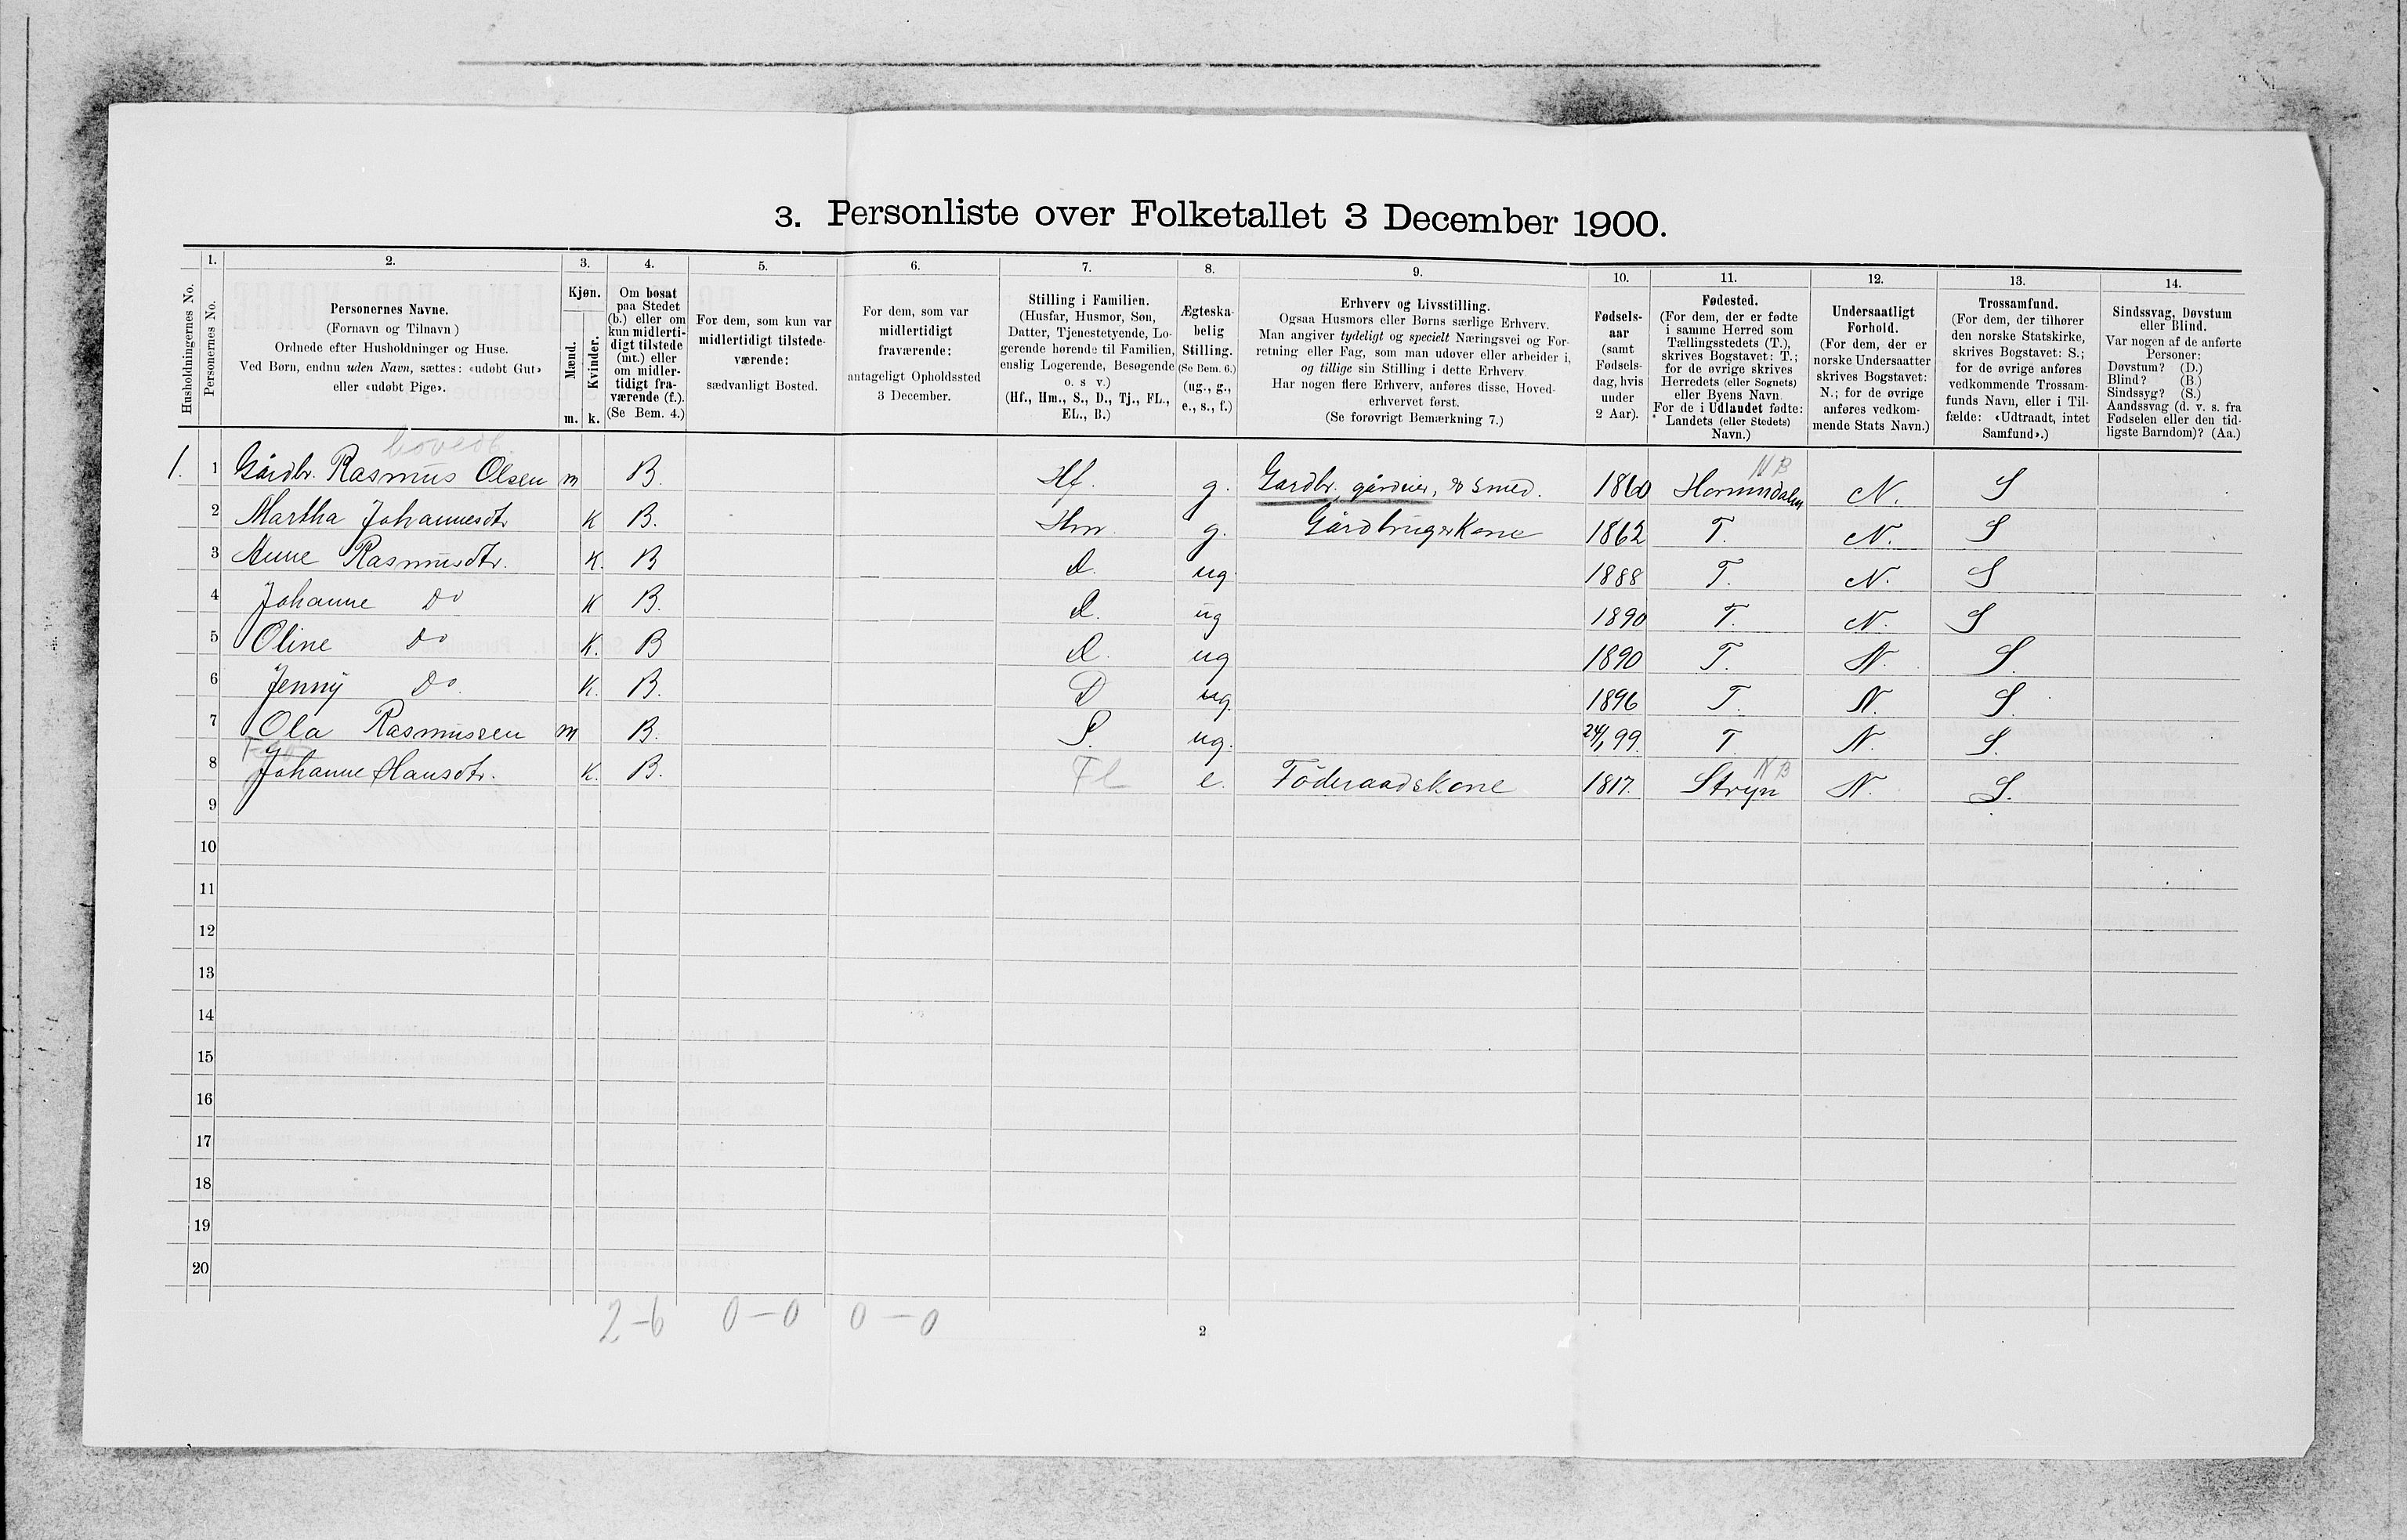 3. Personliste over Folketallet 3 December 1900.
Husholdningernes No.
1.
Personernes No.
2.
Personernes Navne.
(Fornavn og Tilnavn)
Ordnede efter Husholdninger og Huse.
Ved Børn, endnu uden Navn, sættes: «udøbt Gut»
eller «udøbt Pige».
3.
Kjøn.
Mænd.
Kvinder.
m. k.
4.
Om bosat
paa Stedet
(b.) eller om
kun midlerti-
digt tilstede
(mt.) eller
om midler-
tidigt fra-
værende (f.).
(Se Bem. 4.)
5.
For dem, som kun var
midlertidigt tilstede-
værende:
sædvanligt Bosted.
6.
For dem, som var
midlertidigt
fraværende:
antageligt Opholdssted
3 December.
7.
Stilling i Familien.
(Husfar, Husmor, Søn,
Datter, Tjenestetyende, Lo-
gerende hørende til Familien,
enslig Logerende, Besøgende
o. s v.)
(Hf., Hm., S., D., Tj., FL.,
EL., B.)
8.
Ægteska-
belig
Stilling.
(Se Bem. 6.)
(ug., g.,
e., s., f.)
9.
Erhverv og Livsstilling.
Ogsaa Husmors eller Børns særlige Erhverv.
Man angiver tydeligt og specielt Næringsvei og For-
retning eller Fag, som man udøver eller arbeider i,
og tillige sin Stilling i dette Erhverv
Har nogen flere Erhverv, anføres disse, Hoved-
erhvervet først.
(Se forøvrigt Bemærkning 7.)
10.
Fødsels-
aar
(samt
Fødsels-
dag, hvis
under
2 Aar).
11.
Fødested.
(For dem, der er fødte
i samme Herred som
Tællingsstedets (T.),
skrives Bogstavet: T.;
for de øvrige skrives
Herredets (eller Sognets)
eller Byens Navn.
For de i Udlandet fødte:
Landets (eller Stedets)
Navn.)
12.
Undersaatligt
Forhold.
(For dem, der er
norske Undersaatter
skrives Bogstavet:
N.; for de øvrige
anføres vedkom-
mende Stats Navn.)
13.
Trossamfund.
(For dem, der tilhører
den norske Statskirke,
skrives Bogstavet: S.;
for de øvrige anføres
vedkommende Trossam-
funds Navn, eller i Til-
fælde: «Udtraadt, intet
Samfund».)
14.
Sindssvag, Døvstum
eller Blind.
Var nogen af de anførte
Personer:
Døvstum? (D.)
Blind? (B.)
Sindssyg? (S.)
Aandssvag (d. v. s. fra
Fødselen eller den tid-
ligste Barndom)? (Aa.)
hovedb.
1. 1 Gårdbr. Rasmus Olsen m B. Hf. g. Gardbr, gårdeier, og smed. 1860 Hornindalen NB N. S
2 Martha Johannesdtr K B. Hm. g. Gårdbruger Kone 1862 T. N. S
3 Anne Rasmusdtr. K. B D. ug. 1888 T. N. S
4 Johanne Do K B. D. ug 1890 T. N. S
5 Oline do K. B D. ug 1890 T. N. S.
6 Jenny Do. K. B. D ug. 1896 T. N. S.
7 Ola Rasmussen m B. S. ug. 24/1 99. T. N. S.
8 Johanne Hansdtr. K. B. Fl e. Föderaadskone 1817. Stryn NB N. S.
9
10
11
12
13
14
15
16
17
18
19
20
2-6 0-0 0-0
2